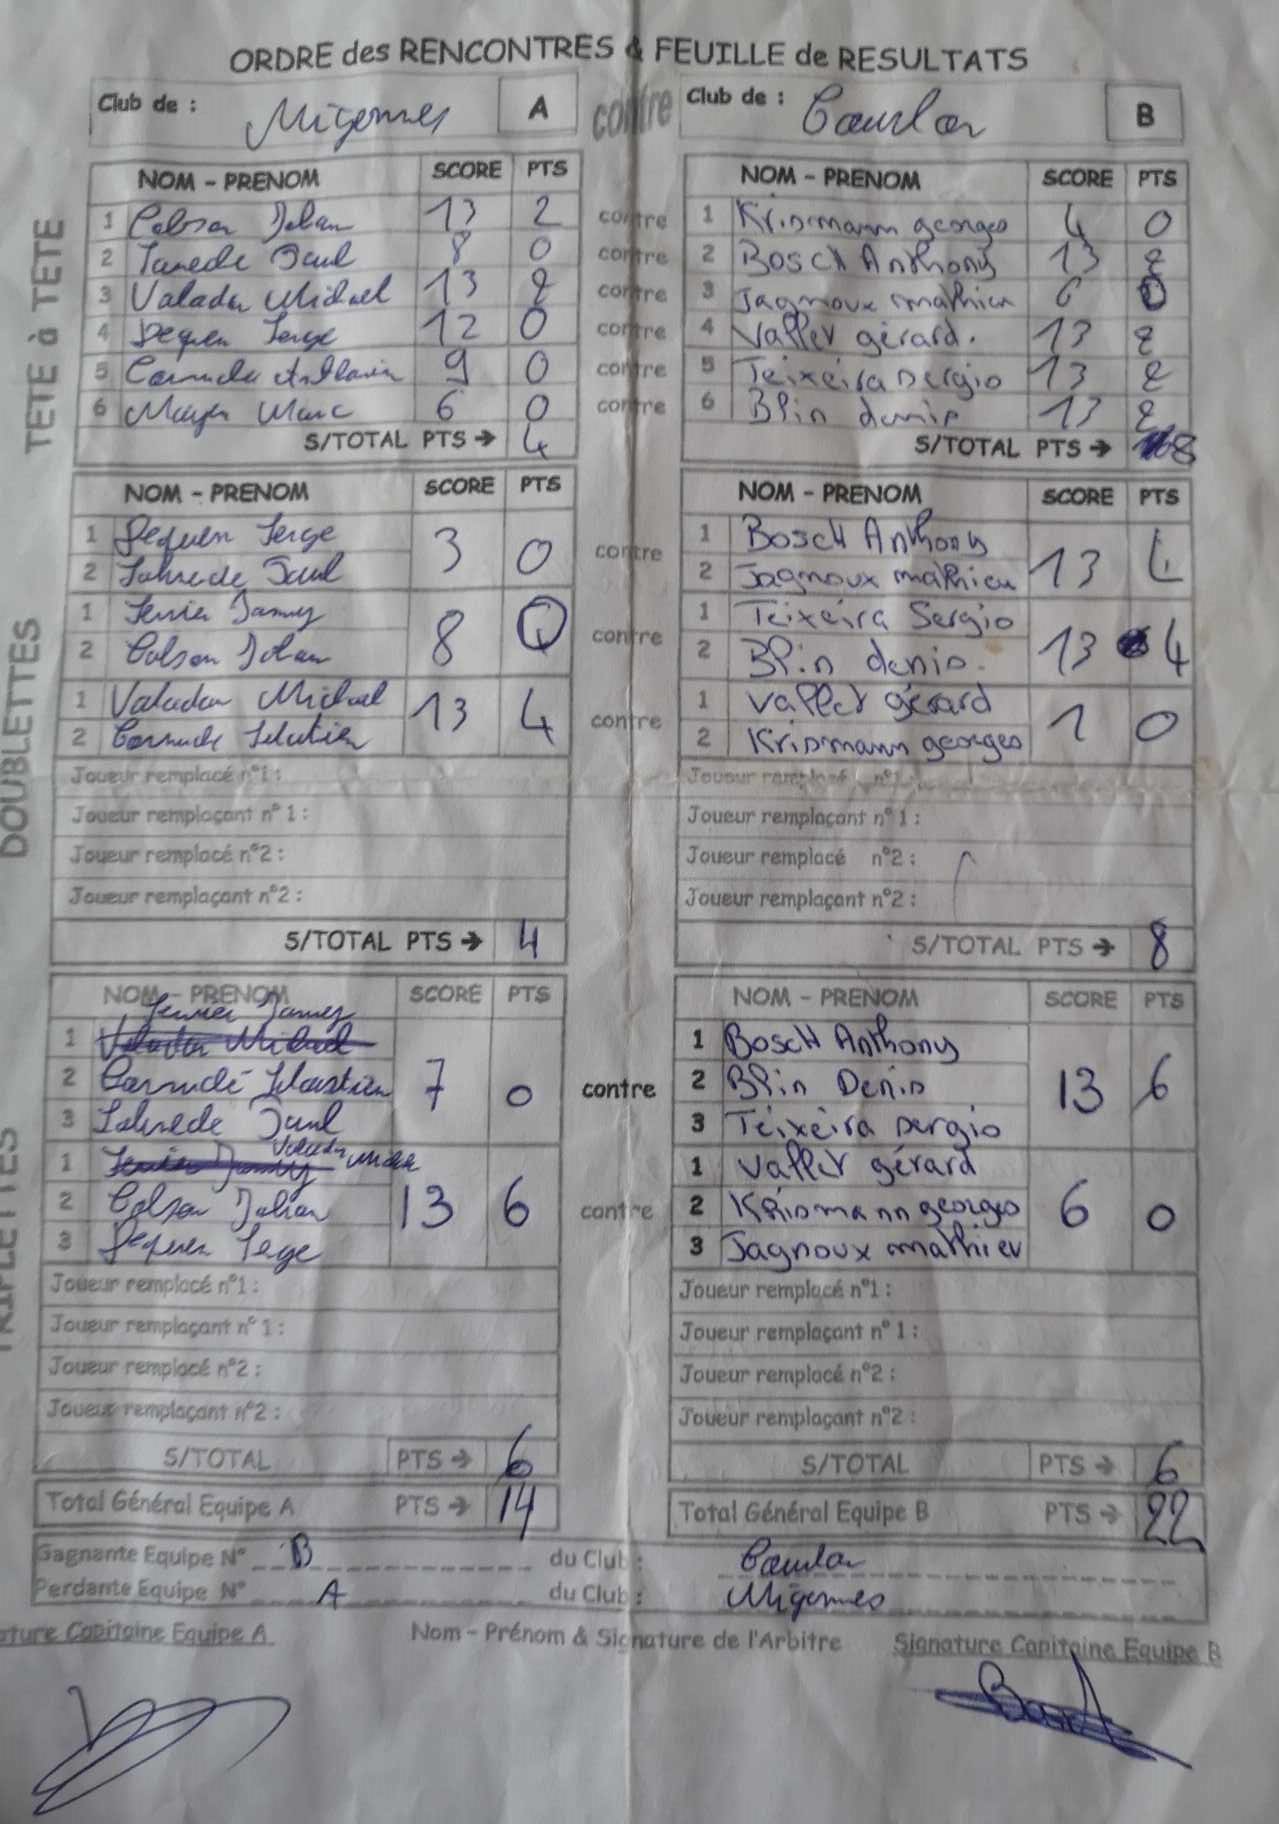 ORDRE des RENCONTRES & FEUILLE de RESULTATS
Club de : Migennes A contre Club de : Courlon B
TETE à TETE
NOM - PRENOM SCORE PTS NOM - PRENOM SCORE PTS
1 Colson Johan 13 2 contre 1 Krismann georges 4 0
2 Paul 8 0 contre 2 BoscH Anthony 13 2
3 Valadon Mickael 13 2 contre 3 Jagnoux mathieu 6 0
4 Dequen Serge 12 0 contre 4 Vallet gérard. 13 2
5 9 0 contre 5 Teixeira sergio 13 2
6 Marc 6 0 contre 6 Blin denis 13 2
S/TOTAL PTS → 4 S/TOTAL PTS → 8
DOUBLETTES
NOM - PRENOM SCORE PTS NOM - PRENOM SCORE PTS
1 Dequen Serge 3 0 contre 1 BoscH Anthony 13 4
2 Paul 2 Jagnoux mathieu
1 Jamy 8 0 contre 1 Teixeira Sergio 13 4
2 Colson Johan 2 Blin denis.
1 Valadon Mickael 13 4 contre 1 Vallet gérard 1 0
2 2 Krismann georges
Joueur remplacé n°1 : Joueur remplacé n°1 :
Joueur remplaçant n° 1 : Joueur remplaçant n° 1 :
Joueur remplacé n°2 : Joueur remplacé n°2 :
Joueur remplaçant n°2 : Joueur remplaçant n°2 :
S/TOTAL PTS → 4 S/TOTAL PTS → 8
TRIPLETTES
NOM - PRENOM SCORE PTS NOM - PRENOM SCORE PTS
Jamy
1 Valadon Mickael 7 0 contre 1 BoscH Anthony 13 6
2 Sebastien 2 Blin Denis
3 Paul 3 Teixeira sergio
Valadon
1 Jamy 13 6 contre 1 Vallet gérard 6 0
2 Colson Johan 2 Krismann georges
3 Dequen Serge 3 Jagnoux mathieu
Joueur remplacé n°1 : Joueur remplacé n°1 :
Joueur remplaçant n° 1 : Joueur remplaçant n° 1 :
Joueur remplacé n°2 : Joueur remplacé n°2 :
Joueur remplaçant n°2 : Joueur remplaçant n°2 :
S/TOTAL PTS → 6 S/TOTAL PTS → 6
Total Général Equipe A PTS → 14 Total Général Equipe B PTS → 22
Gagnante Equipe N° B du Club : Courlon
Perdante Equipe N° A du Club : Migennes
ature Capitaine Equipe A Nom - Prénom & Signature de l'Arbitre Signature Capitaine Equipe B